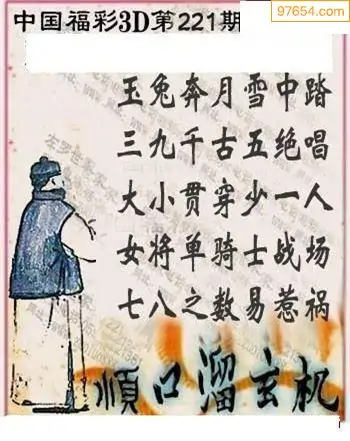 中国福彩3D第221期
97654.com
玉兔奔月雪中踏
三九千古五绝唱
大小贯穿少一人
女将单骑士战场
七八之数易惹祸
順口溜玄机